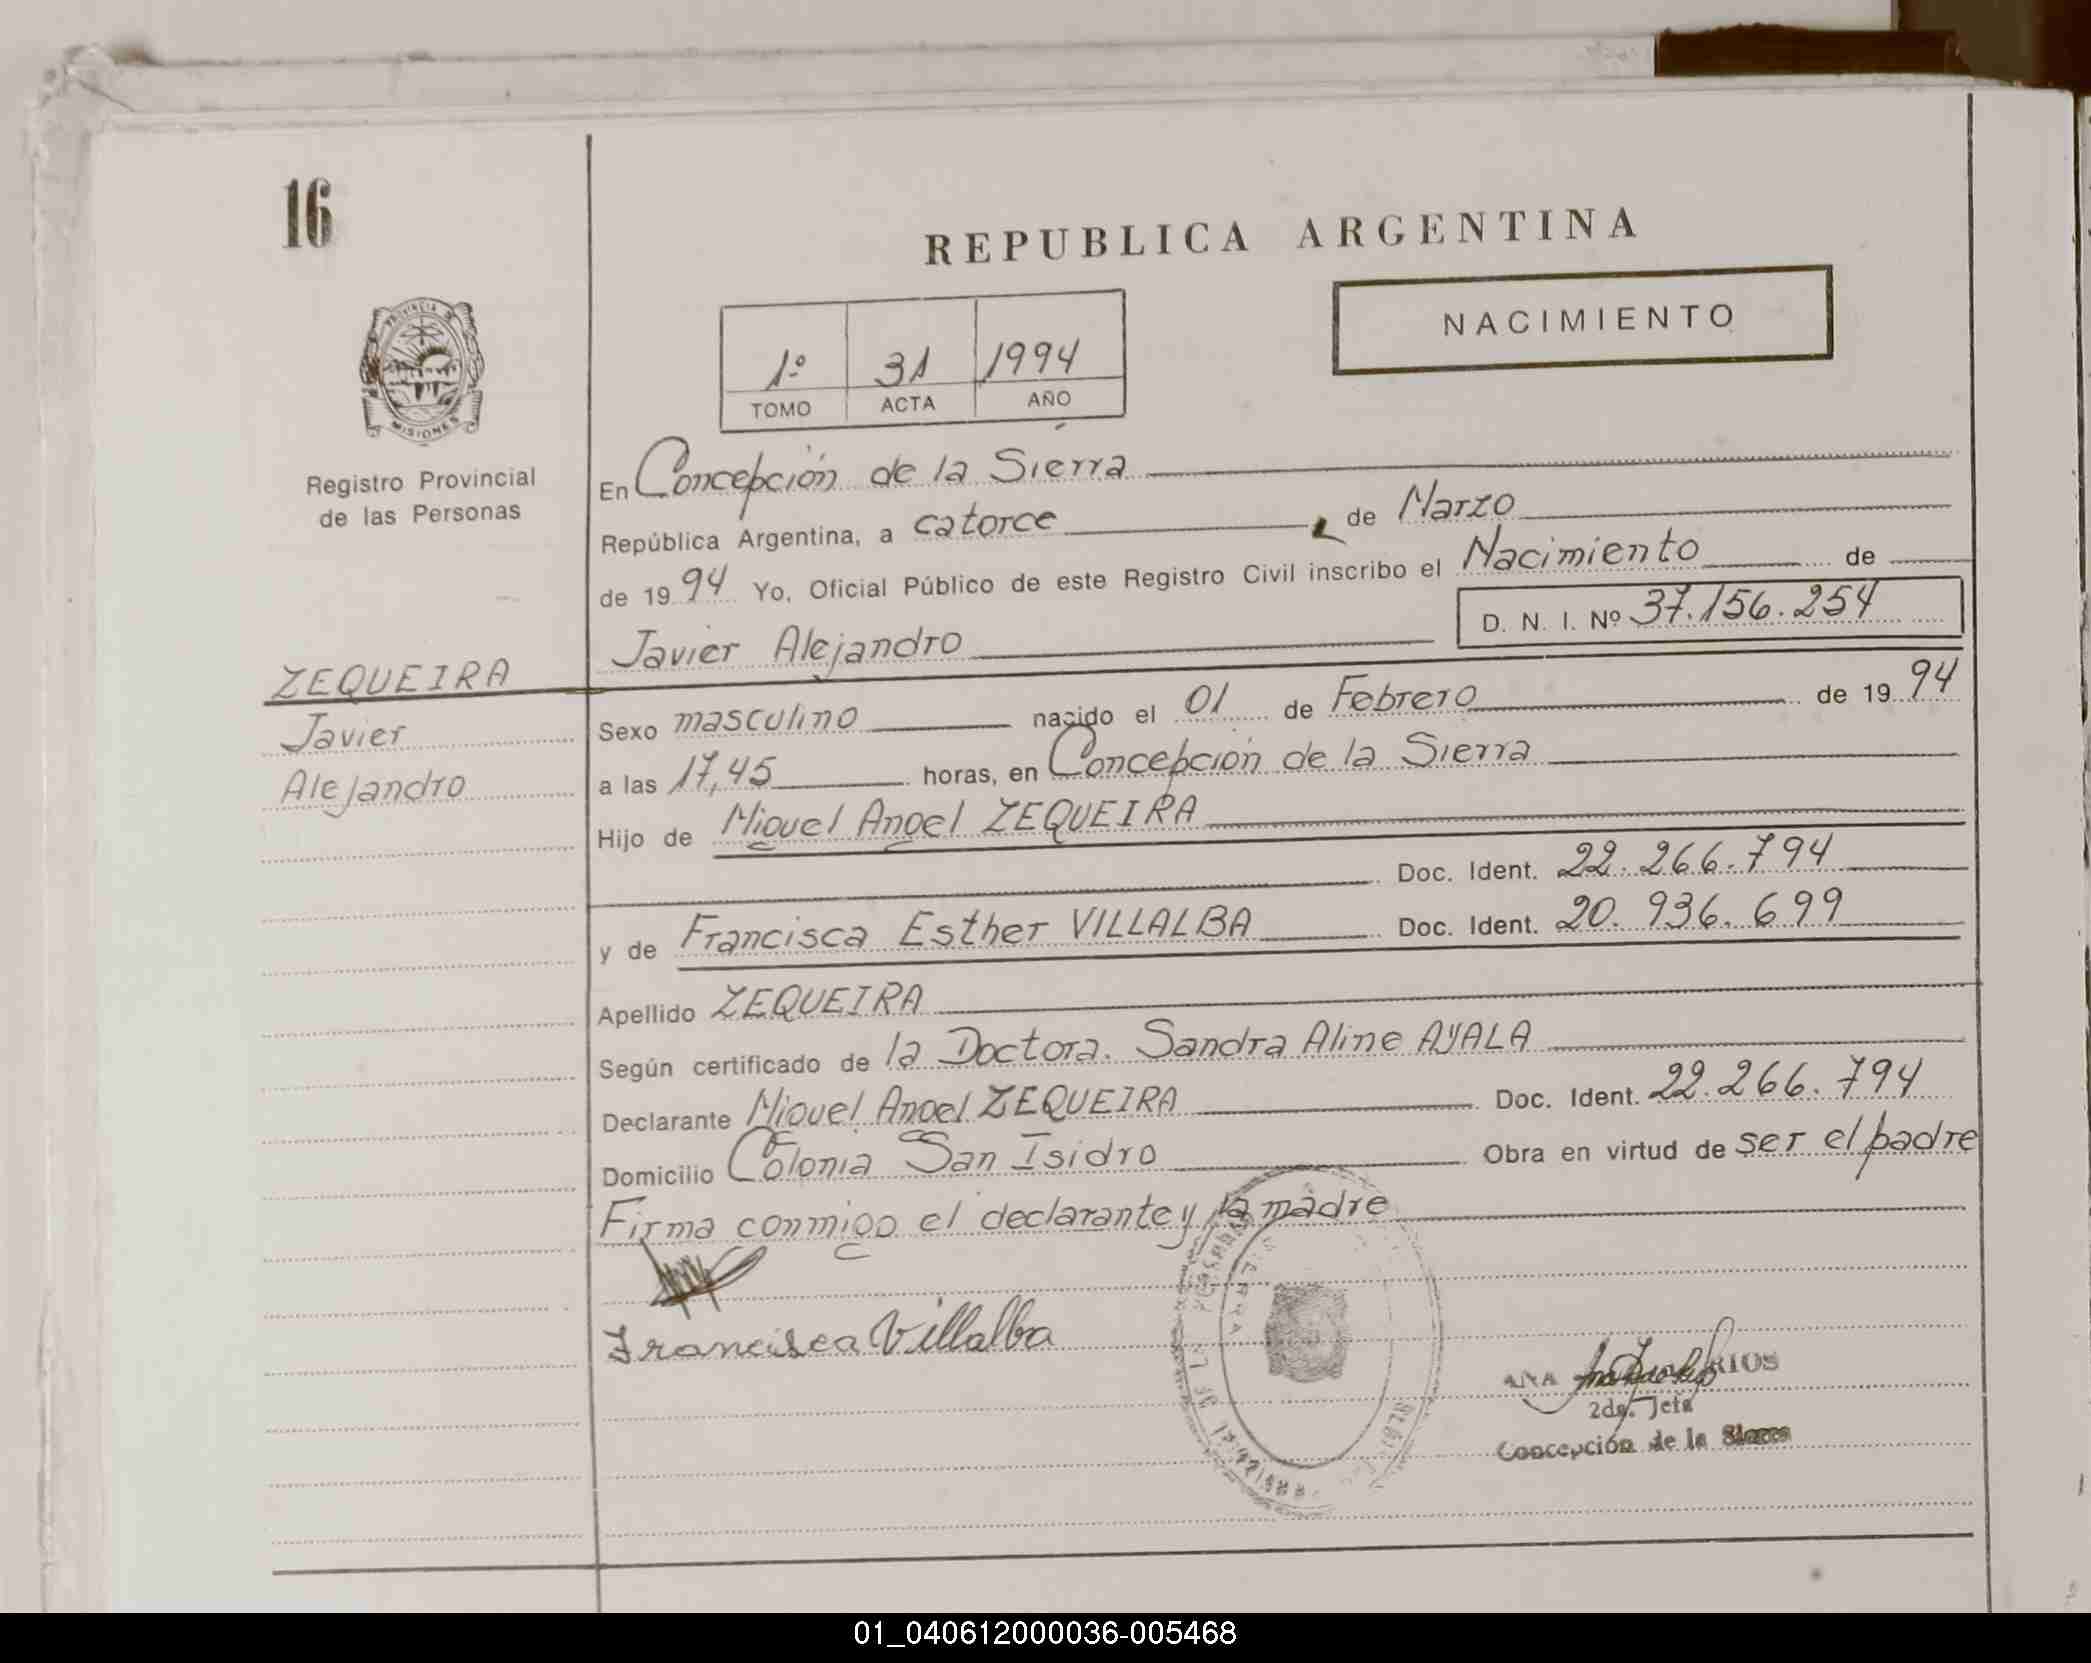 16
REPUBLICA ARGENTINA
NACIMIENTO
1º 31 1994
TOMO ACTA AÑO
PROVINCIA DE
MISIONES
Registro Provincial
de las Personas
En Concepción de la Sierra
República Argentina, a catorce de Marzo
de 1994 Yo, Oficial Público de este Registro Civil inscribo el Nacimiento de
D. N. I. Nº 37.156.254
Javier Alejandro
ZEQUEIRA
Javier
Alejandro
Sexo masculino nacido el 01 de Febrero de 1994
a las 17,45 horas, en Concepción de la Sierra
Hijo de Miguel Angel ZEQUEIRA
Doc. Ident. 22.266.794
y de Francisca Esther VILLALBA Doc. Ident. 20.936.699
Apellido ZEQUEIRA
Según certificado de la Doctora. Sandra Aline AYALA
Declarante Miguel Angel ZEQUEIRA Doc. Ident. 22.266.794
Domicilio Colonia San Isidro Obra en virtud de ser el padre
Firma conmigo el declarante y la madre
Francisca Villalba
ANA RIOS
2da. Jefa
Concepción de la Sierra
01_040612000036-005468